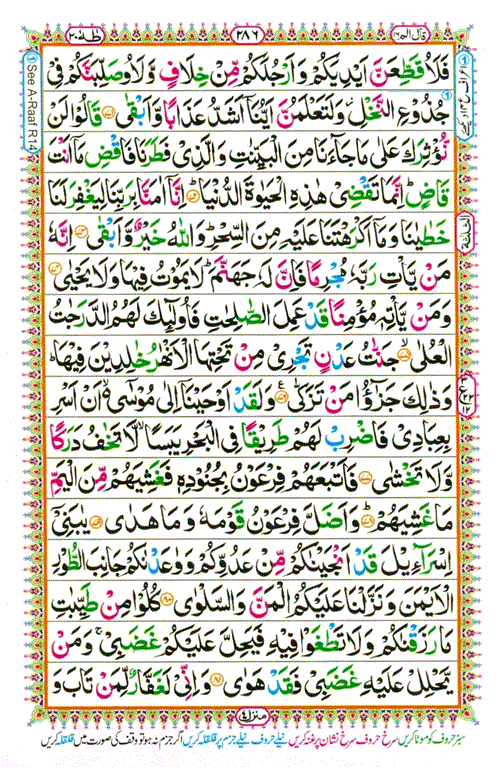 قال الم ١٦
٢٨٦
طٰهٰ ٢٠
فَلَاُقَطِّعَنَّ اَيْدِيَكُمْ وَاَرْجُلَكُمْ مِّنْ خِلَافٍ وَّلَاُوصَلِّبَنَّكُمْ فِيْ
جُذُوْعِ النَّخْلِ ۫ وَلَتَعْلَمُنَّ اَيُّنَاۤ اَشَدُّ عَذَابًا وَّاَبْقٰى ﴿٧١﴾ قَالُوْا لَنْ
نُّؤْثِرَكَ عَلٰى مَا جَآءَنَا مِنَ الْبَيِّنٰتِ وَالَّذِيْ فَطَرَنَا فَاقْضِ مَاۤ اَنْتَ
قَاضٍ ؕ اِنَّمَا تَقْضِيْ هٰذِهِ الْحَيٰوةَ الدُّنْيَا ؕ﴿٧٢﴾ اِنَّاۤ اٰمَنَّا بِرَبِّنَا لِيَغْفِرَ لَنَا
خَطٰيٰنَا وَمَاۤ اَكْرَهْتَنَا عَلَيْهِ مِنَ السِّحْرِ ؕ وَاللّٰهُ خَيْرٌ وَّاَبْقٰى ﴿٧٣﴾ اِنَّهٗ
مَنْ يَّاْتِ رَبَّهٗ مُجْرِمًا فَاِنَّ لَهٗ جَهَنَّمَ ؕ لَا يَمُوْتُ فِيْهَا وَلَا يَحْيٰى ﴿٧٤﴾
وَمَنْ يَّاْتِهٖ مُؤْمِنًا قَدْ عَمِلَ الصّٰلِحٰتِ فَاُولٰٓئِكَ لَهُمُ الدَّرَجٰتُ
الْعُلٰى ۙ﴿٧٥﴾ جَنّٰتُ عَدْنٍ تَجْرِيْ مِنْ تَحْتِهَا الْاَنْهٰرُ خٰلِدِيْنَ فِيْهَا ؕ
وَذٰلِكَ جَزٰٓؤُا مَنْ تَزَكّٰى ﴿٧٦﴾ ع وَلَقَدْ اَوْحَيْنَاۤ اِلٰى مُوْسٰٓى ۙ اَنْ اَسْرِ
بِعِبَادِيْ فَاضْرِبْ لَهُمْ طَرِيْقًا فِي الْبَحْرِ يَبَسًا ۙ لَّا تَخٰفُ دَرَكًا
وَّلَا تَخْشٰى ﴿٧٧﴾ فَاَتْبَعَهُمْ فِرْعَوْنُ بِجُنُوْدِهٖ فَغَشِيَهُمْ مِّنَ الْيَمِّ
مَا غَشِيَهُمْ ؕ﴿٧٨﴾ وَاَضَلَّ فِرْعَوْنُ قَوْمَهٗ وَمَا هَدٰى ﴿٧٩﴾ يٰبَنِيْۤ
اِسْرَآءِيْلَ قَدْ اَنْجَيْنٰكُمْ مِّنْ عَدُوِّكُمْ وَوٰعَدْنٰكُمْ جَانِبَ الطُّوْرِ
الْاَيْمَنَ وَنَزَّلْنَا عَلَيْكُمُ الْمَنَّ وَالسَّلْوٰى ﴿٨٠﴾ كُلُوْا مِنْ طَيِّبٰتِ
مَا رَزَقْنٰكُمْ وَلَا تَطْغَوْا فِيْهِ فَيَحِلَّ عَلَيْكُمْ غَضَبِيْ ۚ وَمَنْ
يَّحْلِلْ عَلَيْهِ غَضَبِيْ فَقَدْ هَوٰى ﴿٨١﴾ وَاِنِّيْ لَغَفَّارٌ لِّمَنْ تَابَ وَ
منزل ٤
سبز حروف کو موٹا کریں سرخ حروف سرخ نشان پر غنہ کریں نیلے حروف نیلے جزم پر قلقلہ کریں اگر جزم نہ ہو تو وقف کی صورت میں قلقلہ کریں
See A-Raaf R14